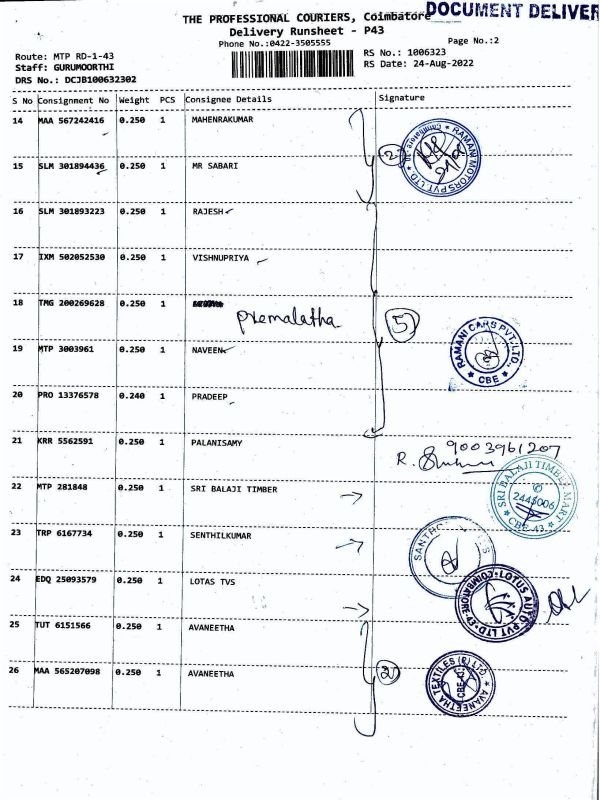 THE PROFESSIONAL COURIERS, Coimbatore
DOCUMENT DELIVER
Delivery Runsheet - P43
Phone No.:0422-3505555
Page No.:2
Route: MTP RD-1-43
RS No.: 1006323
Staff: GURUMOORTHI
RS Date: 24-Aug-2022
DRS No.: DCJB100632302
S No Consignment No Weight PCS Consignee Details Signature
14 MAA 567242416 0.250 1 MAHENRAKUMAR
2
RAMANI MOTORS PVT. LTD.
15 SLM 301894436 0.250 1 MR SABARI
16 SLM 301893223 0.250 1 RAJESH
17 IXM 502052530 0.250 1 VISHNUPRIYA
18 TMG 200269628 0.250 1
Premalatha
5
RAMANI CARS PVT. LTD., CBE
19 MTP 3003961 0.250 1 NAVEEN
20 PRO 13376578 0.240 1 PRADEEP
21 KRR 5562591 0.250 1 PALANISAMY
9003961207
R.
22 MTP 281848 0.250 1 SRI BALAJI TIMBER
SRI BALAJI TIMBER MART
CBE-43
23 TRP 6167734 0.250 1 SENTHILKUMAR
24 EDQ 25093579 0.250 1 LOTAS TVS
LOTUS AUTO PVT LTD COIMBATORE-43
25 TUT 6151566 0.250 1 AVANEETHA
26 MAA 565207098 0.250 1 AVANEETHA
2
AVANEETHA TEXTILES (P) LTD
CBE-43